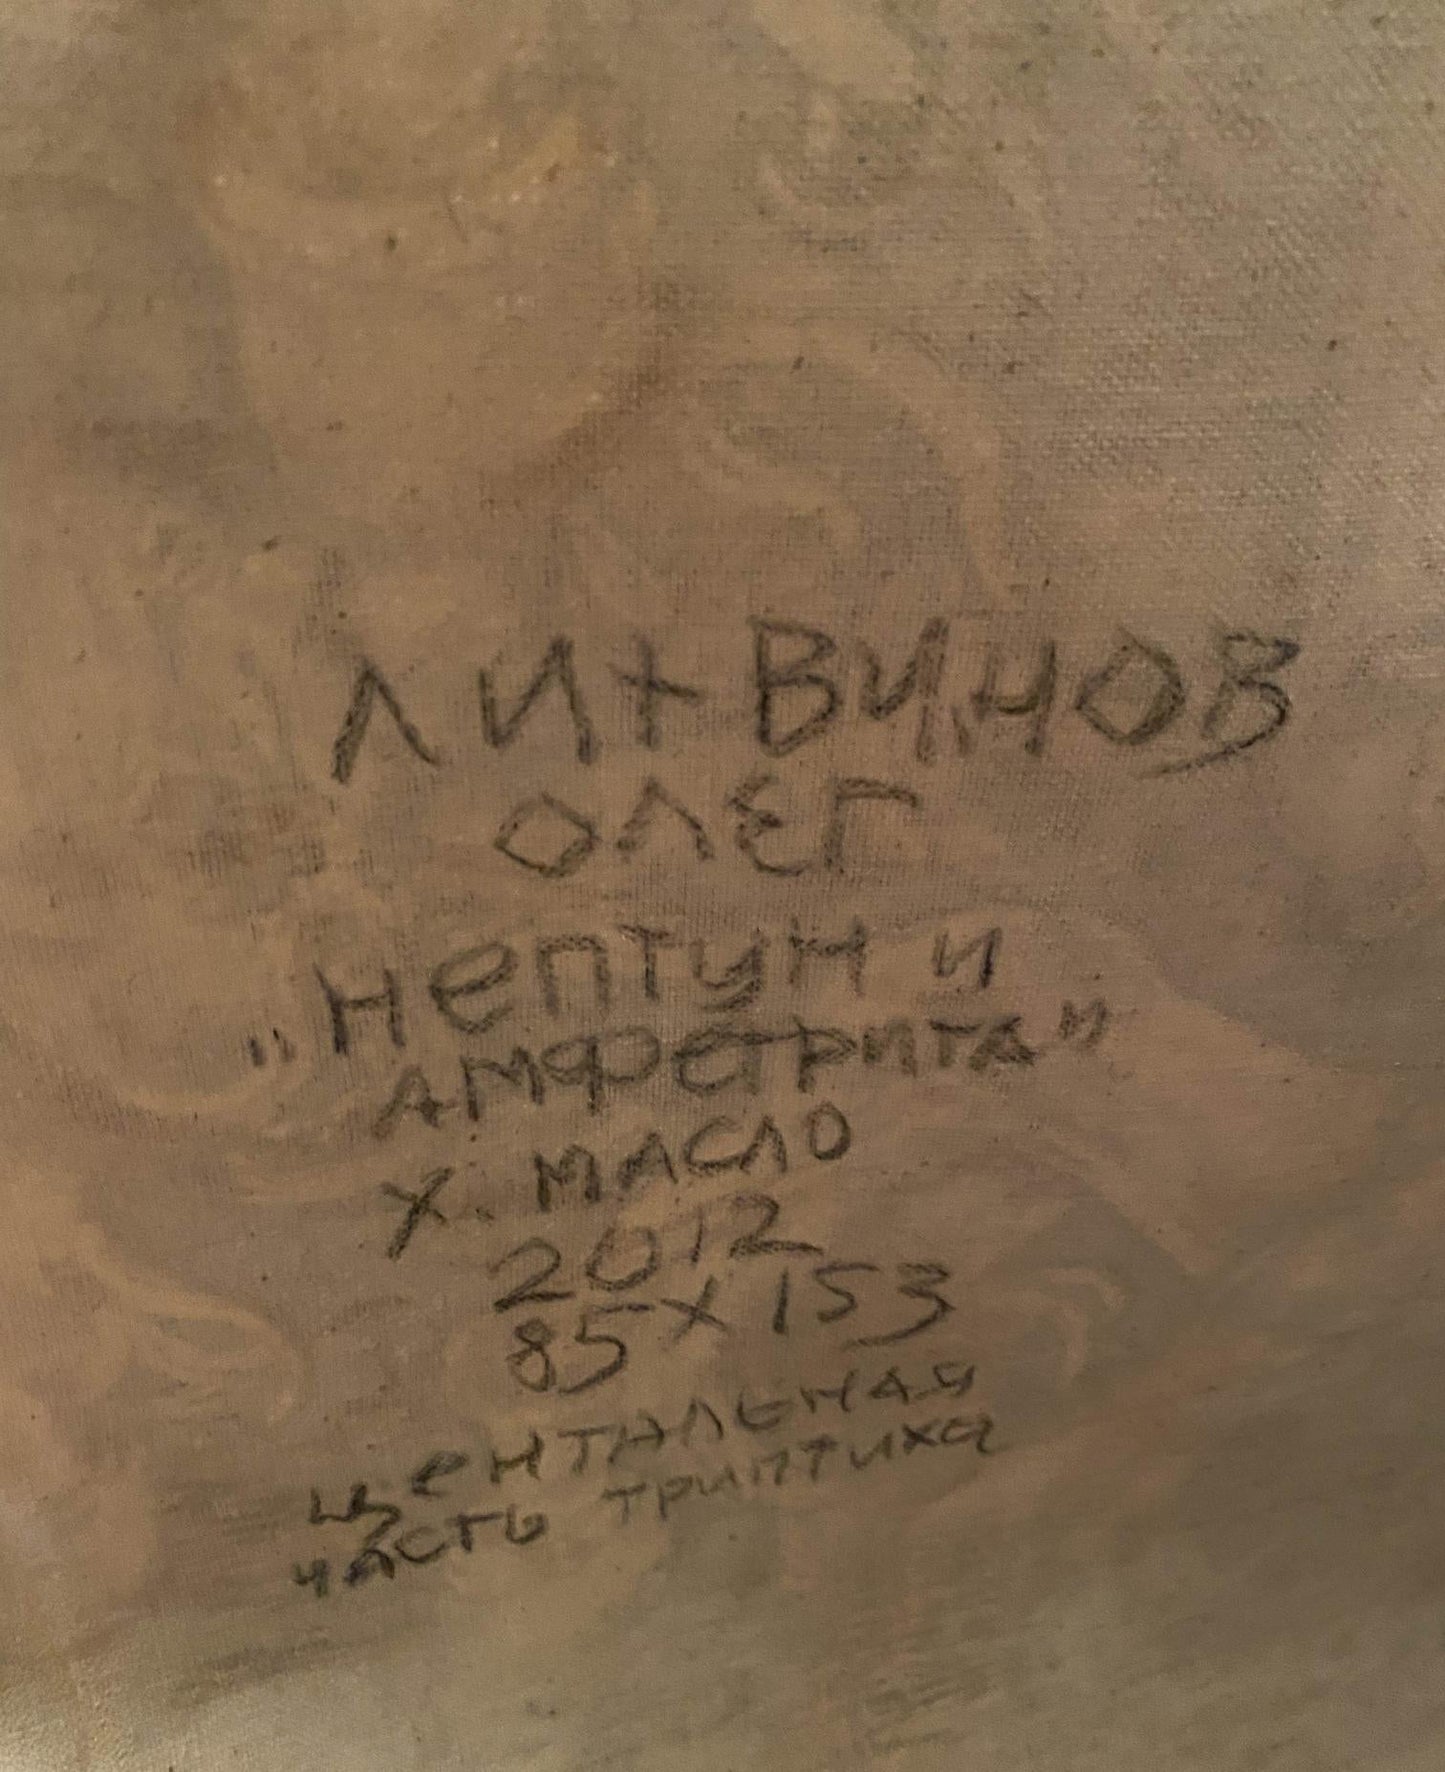 ЛИТВИНОВ
ОЛЕГ
"НЕПТУН И
АМФЕТРИТА"
Х. МАСЛО
2012
85 х 153
ЦЕНТАЛЬНАЯ
ЧАСТЬ ТРИПТИХА